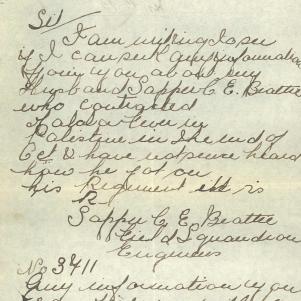 Sir/
I am writing to see
if I can get any information
from you about my
Husband Sapper C E. Beattie
who contracted
Malaria fever in
Palestine in the end of
Oct & have not since heard
how he got on
his Regiment is
Sapper C E. Beattie
Field Squandron
Engineers
No 3411
Any information you